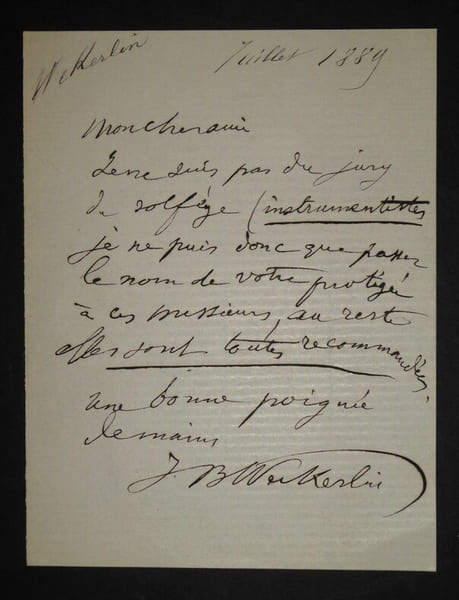 Wekerlin
Juillet 1889
Mon cher ami
Je ne suis pas du jury
de solfège (instrumentistes
je ne puis donc que passer
le nom de votre protégée
à ces messieurs, au reste
elles sont toutes recommandées.
une bonne poignée
de mains
J B Wekerlin